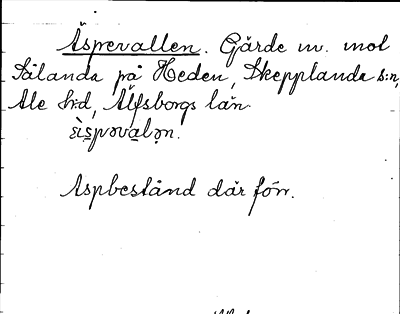 Äspevallen. Gärde m. mot
Sålanda på Heden, Skepplanda s:n,
Ale h:d, Älfsborgs län.
Aspbestånd där förr.